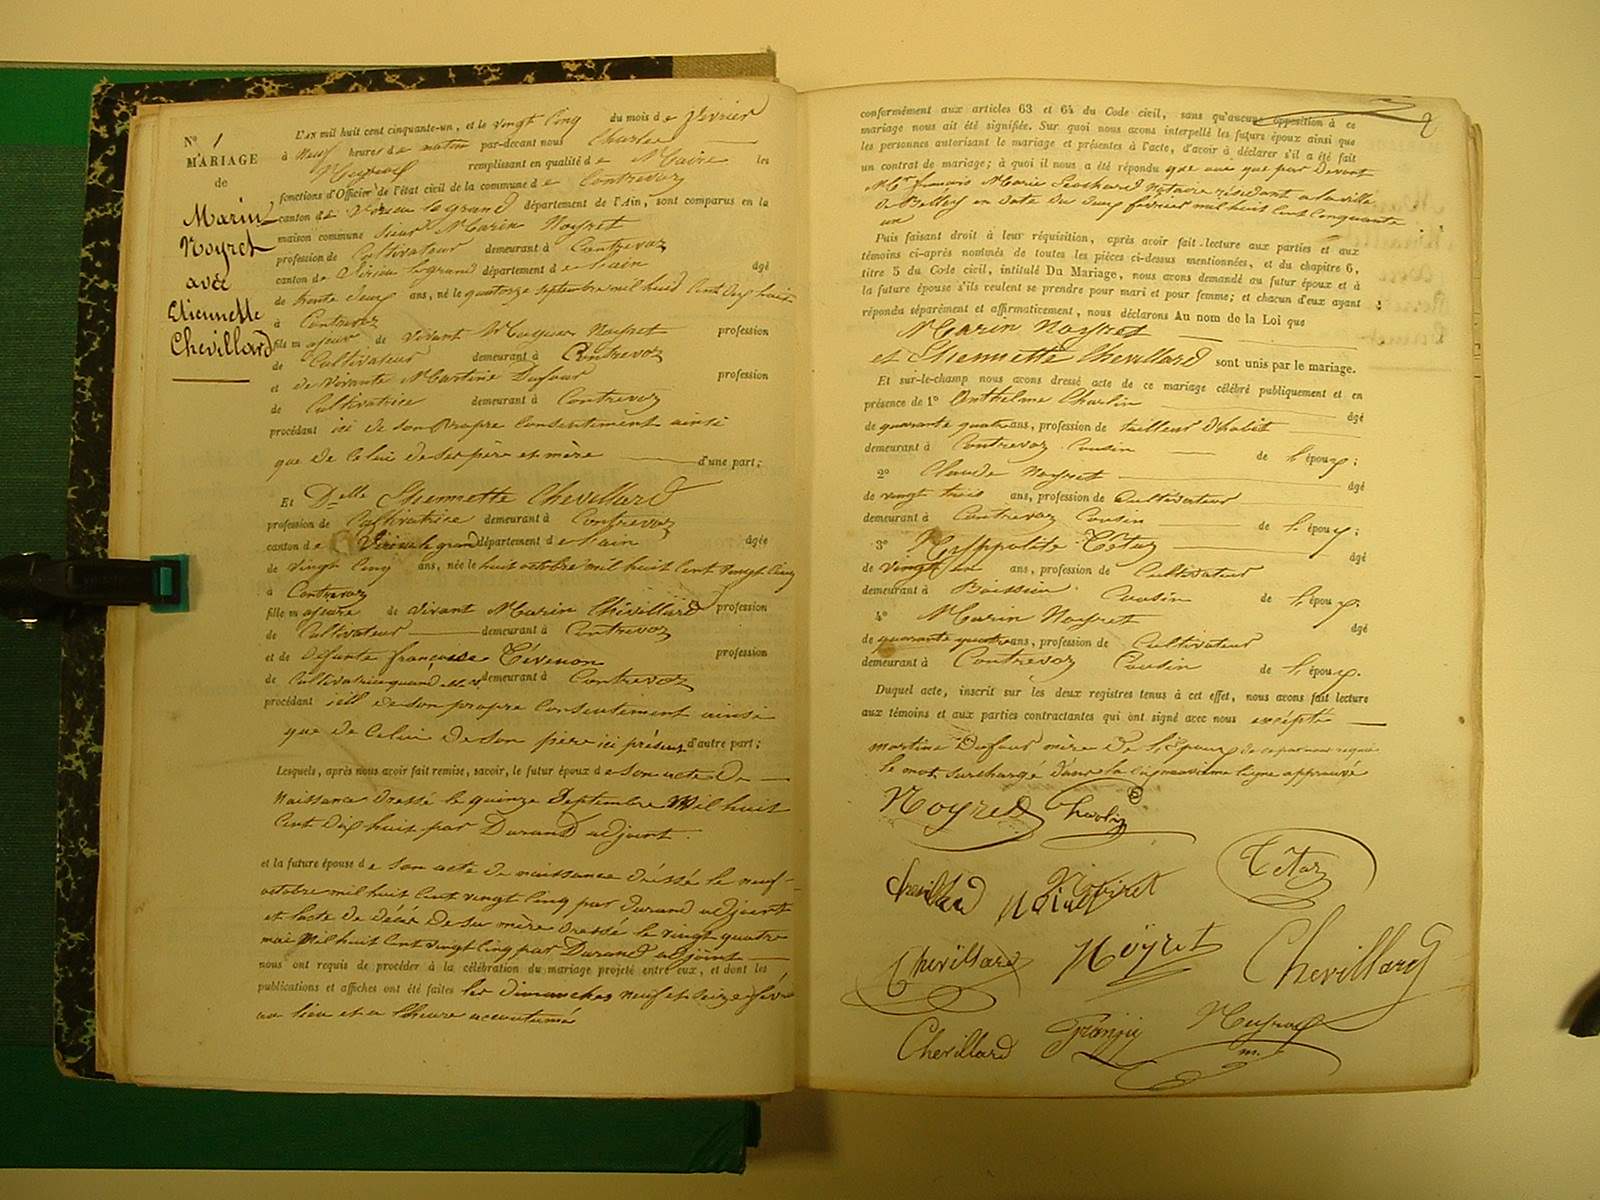 N° 1
MARIAGE
de
Marin
Noyret
avec
Etiennette
Chevillard
L'AN mil huit cent cinquante-un, et le vingt cinq du mois de février
à neuf heures de matin par-devant nous Charles
remplissant en qualité de Maire les
fonctions d'Officier de l'état civil de la commune de Contrevoz
canton de Virieu le grand département de l'Ain, sont comparus en la
maison commune sieur Marin Noyret
profession de Cultivateur demeurant à Contrevoz
canton de Virieu le grand département de l'ain âgé
de trente deux ans, né le quatorze septembre mil huit cent dix huit
à Contrevoz
fils majeur de vivant Noyret profession
de Cultivateur demeurant à Contrevoz
et de vivante Martine Dufour profession
de Cultivatrice demeurant à Contrevoz
procédant ici de son propre consentement ainsi
que de celui de ses père et mère d'une part;
Et Delle Etiennette Chevillard
profession de Cultivatrice demeurant à Contrevoz
canton de Virieu le grand département de l'ain âgée
de vingt cinq ans, née le huit octobre mil huit cent vingt cinq
à Contrevoz
fille majeure de vivant Marin Chevillard profession
de Cultivateur demeurant à Contrevoz
et de défunte françoise Tévenon profession
de Cultivatrice demeurant à Contrevoz
procédant de son propre consentement ainsi
que de celui de son père ici présent d'autre part;
Lesquels, après nous avoir fait remise, savoir, le futur époux de son acte de
naissance dressé le quinze septembre mil huit
cent dix huit par Durand adjoint.
et la future épouse de son acte de naissance dressé le neuf
octobre mil huit cent vingt cinq par Durand adjoint
et l'acte de décès de sa mère dressé le vingt quatre
mai mil huit cent vingt cinq par Durand adjoint
nous ont requis de procéder à la célébration du mariage projeté entre eux, et dont les
publications et affiches ont été faites les dimanches neuf et seize
au lieu et a l'heure accoutumés
2
conformément aux articles 63 et 64 du Code civil, sans qu'aucune opposition à ce
mariage nous ait été signifiée. Sur quoi nous avons interpellé les futurs époux ainsi que
les personnes autorisant le mariage et présentes à l'acte, d'avoir à déclarer s'il a été fait
un contrat de mariage; à quoi il nous a été répondu que oui par devant
Mtre françois Marie notaire résidant a la ville
de Belley en date du deux février mil huit cent cinquante
un
Puis faisant droit à leur réquisition, après avoir fait lecture aux parties et aux
témoins ci-après nommés de toutes les pièces ci-dessus mentionnées, et du chapitre 6,
titre 5 du Code civil, intitulé Du Mariage, nous avons demandé au futur époux et à
la future épouse s'ils veulent se prendre pour mari et pour femme; et chacun d'eux ayant
répondu séparément et affirmativement, nous déclarons Au nom de la Loi que
Marin Noyret
et Etiennette Chevillard sont unis par le mariage.
Et sur-le-champ nous avons dressé acte de ce mariage célébré publiquement et en
présence de 1° Anthelme Charlin âgé
de quarante quatre ans, profession de tailleur d'habit
demeurant à Contrevoz cousin de l'époux;
2° Claude Noyret âgé
de vingt trois ans, profession de Cultivateur
demeurant à Contrevoz Cousin de l'époux;
3° Hyppolite Tétaz âgé
de vingt un ans, profession de Cultivateur
demeurant à Cousin de l'époux.
4° Marin Noyret âgé
de quarante quatre ans, profession de Cultivateur
demeurant à Contrevoz Cousin de l'époux.
Duquel acte, inscrit sur les deux registres tenus à cet effet, nous avons fait lecture
aux témoins et aux parties contractantes qui ont signé avec nous excepté
martine Dufour mère de l'époux de ce par nous requise
le mot surchargé dans la ligne approuvé
Noyret
Chevillard Noiret Tétaz
Chevillard Noyret Chevillard
Chevillard